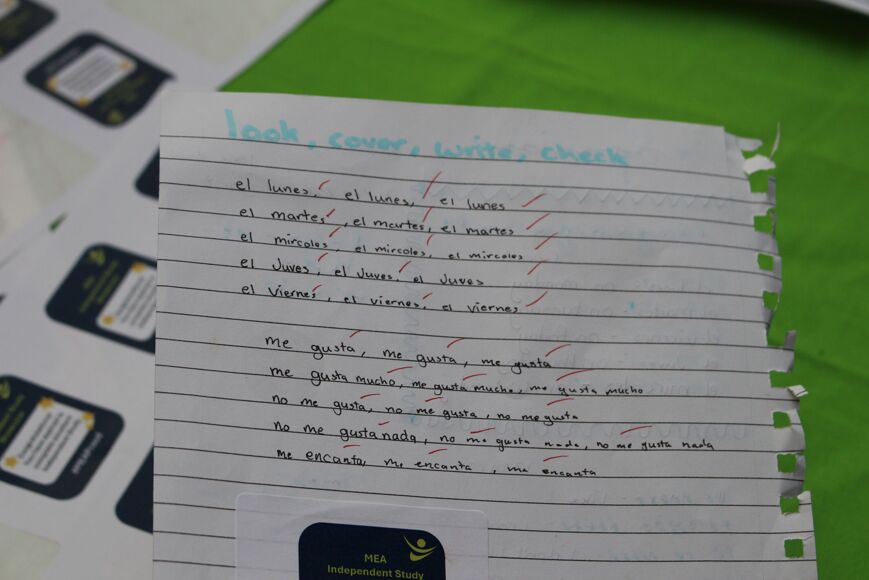 look, cover, write, check
el lunes, el lunes, el lunes
el martes, el martes, el martes
el mircoles, el mircoles, el mircoles
el Juves, el Juves, el Juves
el Viernes, el viernes, el viernes
me gusta, me gusta, me gusta
me gusta mucho, me gusta mucho, me gusta mucho
no me gusta, no me gusta, no me gusta
no me gusta nada, no me gusta nada, no me gusta nada
me encanta, me encanta, me encanta
MEA
Independent Study